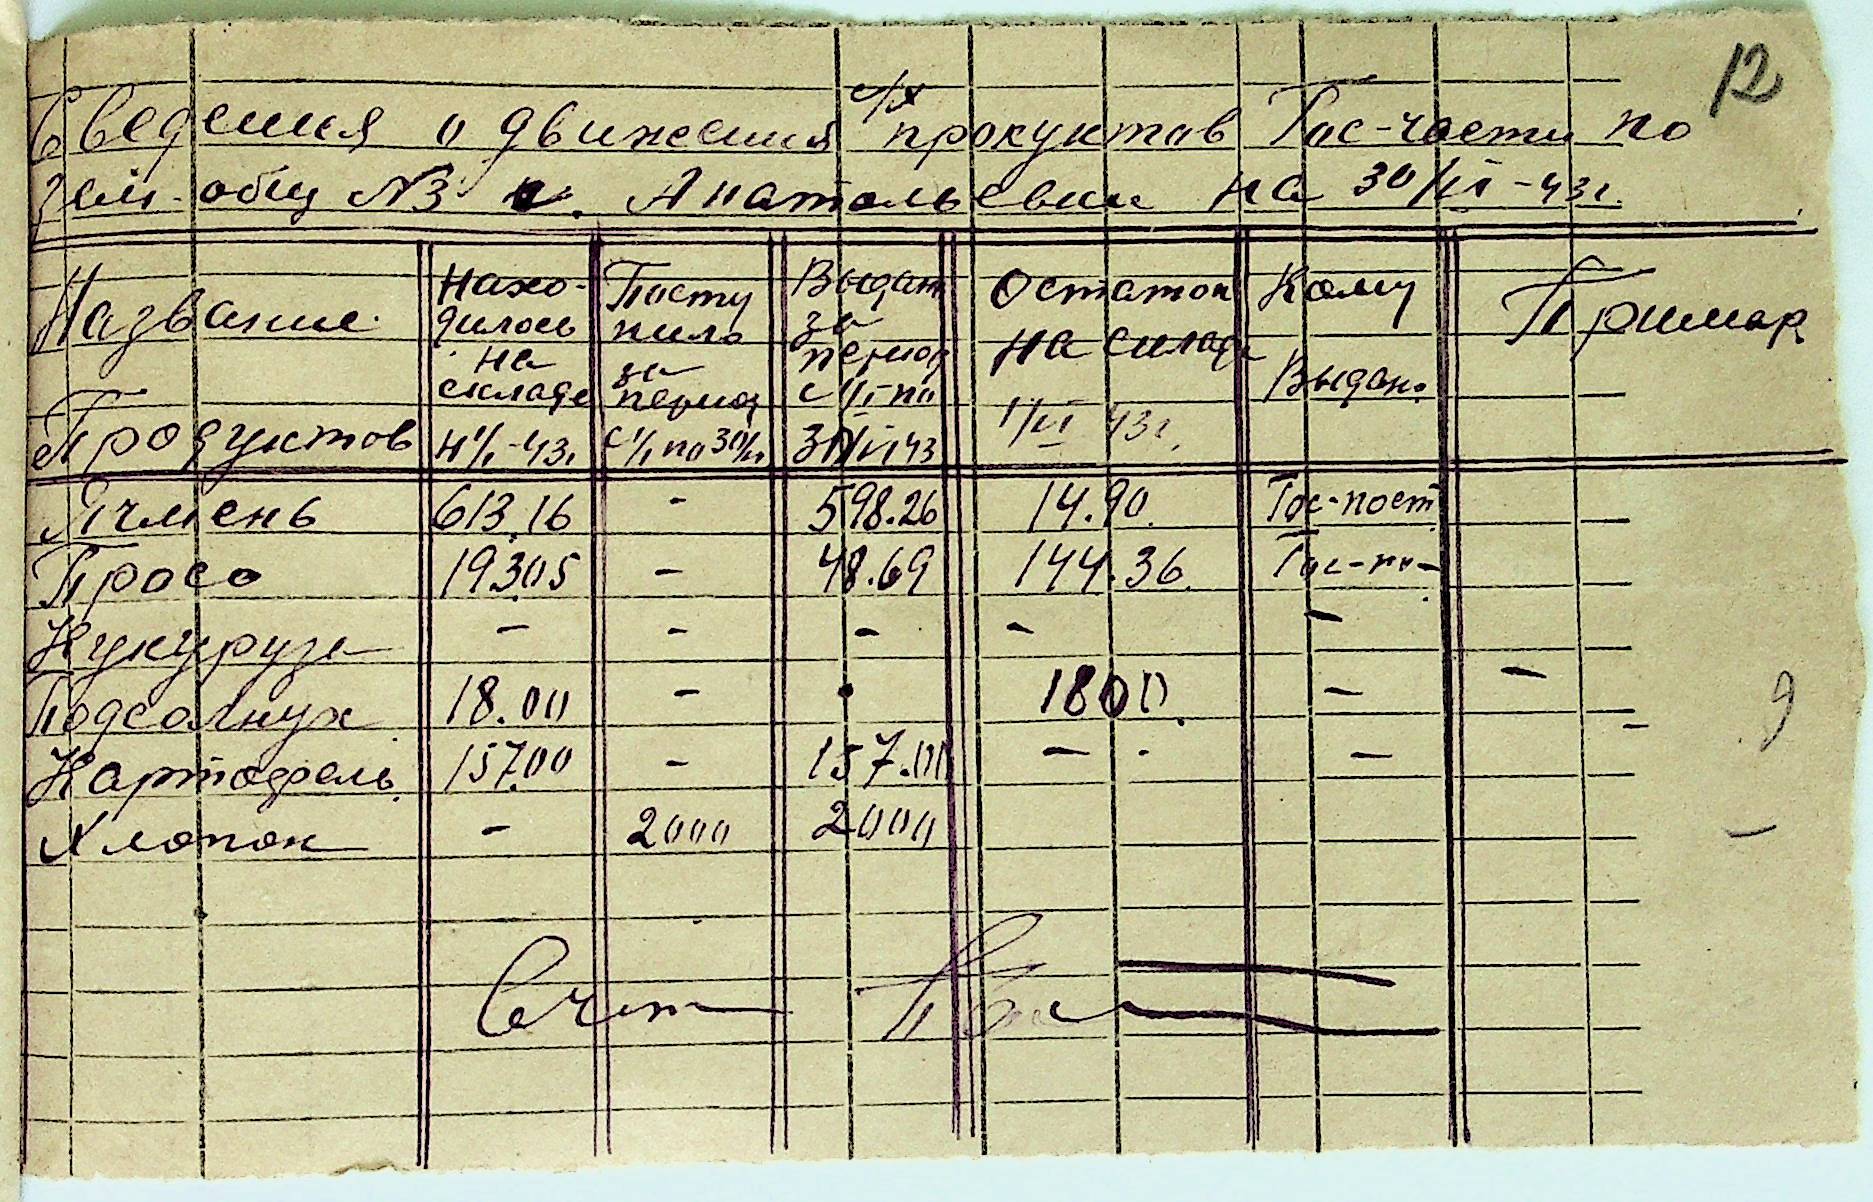 12
Сведения о движения с/х прокуктов Гос-части по
зем-общ №3 с. Анатольевки на 30/VI-43г.
Название Продуктов | Находилось на складе н 1/I-43г | Поступило за период с 1/I по 30/VI | Выдан за период с 1/I по 30/VI 43 | Остаток на складе 1/VI 43г. | Кому Выдан. | Примар
Ячмень 613.16 - 598.26 14.90. Гос-пост
Просо 193.05 - 48.69 144.36. Гос-по-
Кукуруза - - - - -
Подсолнух 18.00 - 1800. - -
Картофель. 157.00 - 157.00 - -
Хлопок - 2000 2000
9
Счет